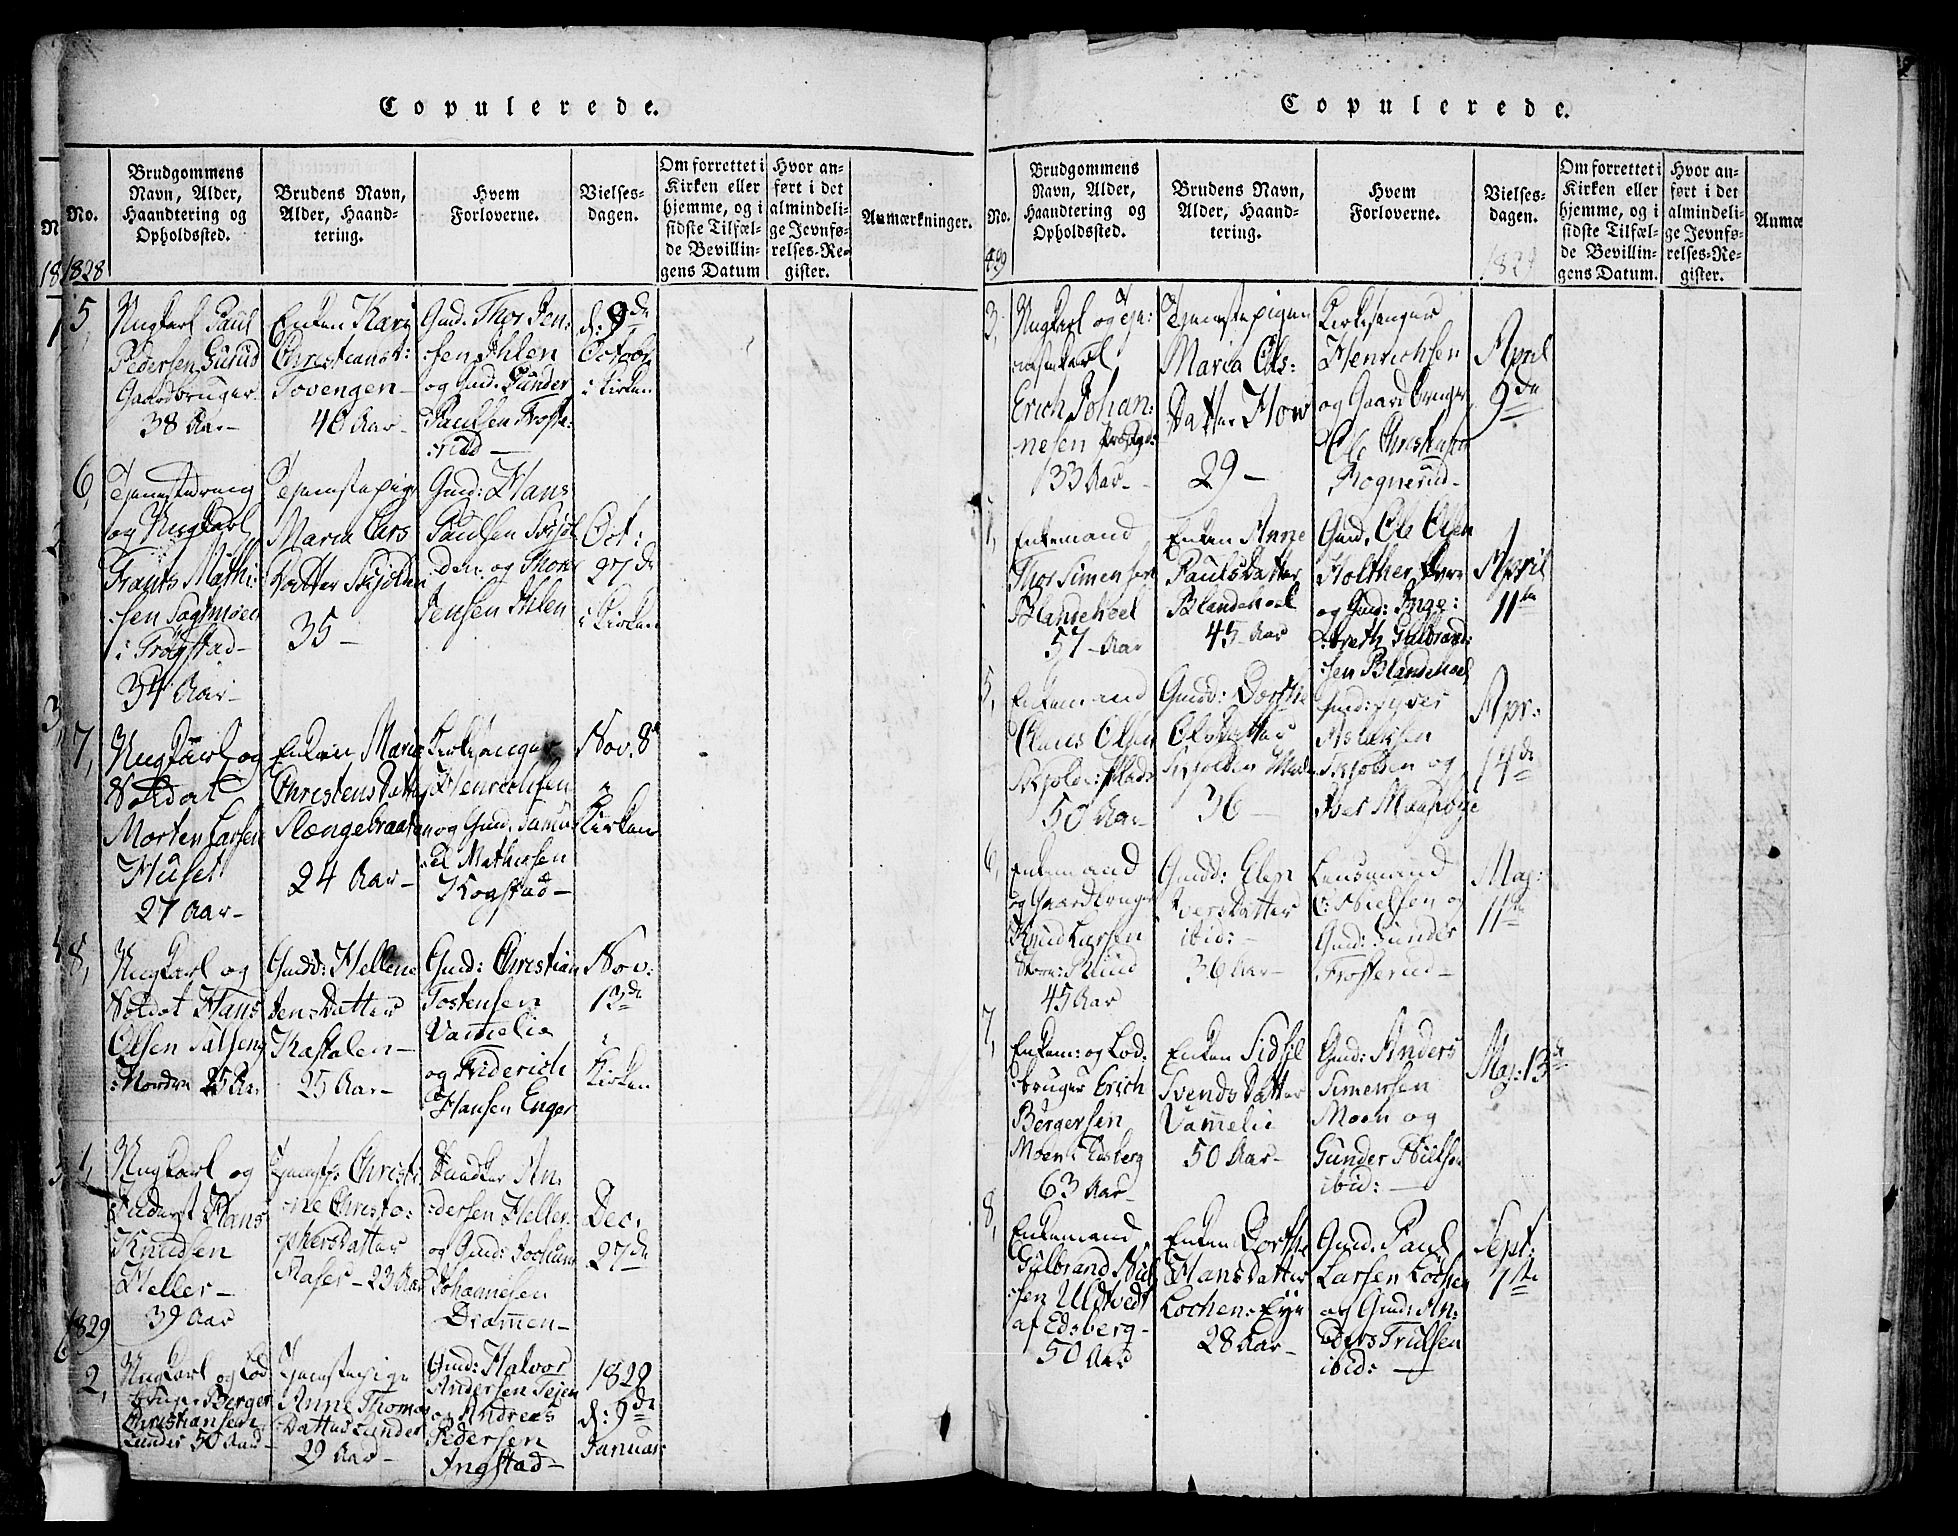 Copulerede.
No.
Brudgommens
Navn, Alder,
Haandtering og
Opholdssted.
Brudens Navn,
Alder, Haand-
tering.
Hvem
Forloverne.
Vielses-
dagen.
Om forrettet i
Kirken eller
hjemme, og i
sidste Tilfæl-
de Bevillin-
gens Datum
Hvor an-
ført i det
almindeli-
ge Jevnfø-
relses-Re-
gister.
Anmærkninger.
1828
5,
Ungkarl Paul
Pedersen
Gaardbruger
38 Aar
Enken Kari
Christians:
Tovengen
40 Aar
Gmd: Thor Jen:
sen Ihlen
og Gmd. Gunder
Paulsen Froste:
rud
d: 9de
Octobr
i Kirken
6,
og Ungkarl
Frants Mathi:
sen
i Trøgstad
34 Aar
Tjenestepige
Maria Lars
Datter Skjolden
35
Gmd: Hans
Paulsen Skjol
den og Thor
Jensen Ihlen
Oct:
27de
i Kirken
7,
Ungkarl og
Soldat
Morten Larsen
Huset
27 Aar
Enken Maria
Christens Datter
Slængebraaten
24 Aar
Kirkesanger
Henrichsen
og Gmd. Samu
el Mathiesen
Kogstad
Nov. 8
i
Kirken
8,
Ungkarl og
Soldat Hans
Olsen
Nordre 25 Aar
Gmdd: Hellene
Jens Datter
Kastalen
25 Aar
Gmd: Christian
Tostensen
Vammelie
og Friderich
Hansen Enger
Nov:
13de
i
Kirken
1,
Ungkarl og
Hans
Knudsen
Heller
39 Aar
Tjenestp Christi
ne Christo:
phersDatter
23 Aar
Snedker An
dersen Heller
og Gmd: Jochum
Johannesen
Drammen
Dec.
27de
1829
2,
Ungkarl og Lod
bruger Berger
Christiansen
Lunder 50 Aar
Tjenestepige
Anne Thomas
Datter Lunder
29 Aar
Gmd: Halvor
Andersen
og Andreas
Pedersen
Ingstad
1829
d: 9de
Januar
Copulerede.
No.
Brudgommens
Navn, Alder,
Haandtering og
Opholdssted.
Brudens Navn,
Alder, Haand-
tering.
Hvem
Forloverne.
Vielses-
dagen.
1829
Om forrettet i
Kirken eller
hjemme, og i
sidste Tilfæl-
de Bevillin-
gens Datum.
Hvor an-
ført i det
almindeli-
ge Jevnfø-
relses-Re-
gister.
Anmæ
3,
Ungkarl og Tje:
nestekarl
Erich Johan:
nesen
33 Aar
Tjenestepigen
Maria Ols:
Datter How
29
Kirkesanger
Henrichsen
og Gaardbruger
Ol. Christensen
Rognerud
April
9de
Enkemand
Thor Simensen
Blandehoel
57 Aar
Enken Anne
PaulsDatter
Blandehoel
45 Aar
Gmd. Ole Olsen
Holther
og Gmd: Inge:
breth Gulbrand:
sen Blandehoel
April
11te
5,
Enkemand
Claus Olsen
50 Aar
Gmdd: Dorthe
OlsDatter
Skjolden
36
Gmd: Syver
Aslaksen
Skjolden og
Apr:
14de
6,
Enkemand
og Gaardbruger
Knud Larsen
45 Aar
Gmdd: Elen
IversDatter
ibid:
36 Aar
Lensmand
Nielsen og
Gmd: Gunder
Frosterud
Maj:
11te
7,
Enkem: og Lod:
bruger Erich
Børgersen
Moen i Edsberg
63 Aar
Enken Sidsel
SvendsDatter
Vammelie
50 Aar
Gmd: Anders
Simensen
Moen og
Gunder Nielsen
ibid:
Maj: 13de
8,
Enkemand
Gulbrand Niel
sen Uldtvedt
af Edsberg
50 Aar
Enken Dorthe
HansDatter
Lochen: Eye
28 Aar
Gmd. Paul
Larsen Lochen
og Gmd: An:
ders Trulsen
ibid:
Sept:
7de